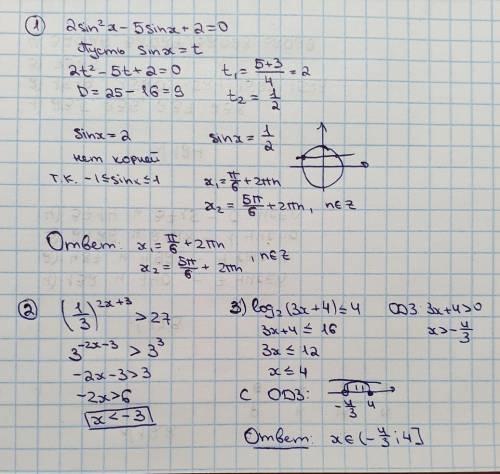 ① 2sin²x - 5sinx + 2 = 0
Пусть sinx = t
2t² - 5t + 2 = 0
D = 25 - 16 = 9
t₁ = (5+3)/4 = 2
t₂ = 1/2
sinx = 2
нет корней
т.к. -1 ≤ sinx ≤ 1
sinx = 1/2
x₁ = π/6 + 2πn
x₂ = 5π/6 + 2πn, n∈Z
Ответ: x₁ = π/6 + 2πn
x₂ = 5π/6 + 2πn , n∈Z
② (1/3)^(2x+3) > 27
3^(-2x-3) > 3³
-2x-3 > 3
-2x > 6
x < -3
3) log₂(3x+4) ≤ 4
3x+4 ≤ 16
3x ≤ 12
x ≤ 4
ОДЗ: 3x+4 > 0
x > -4/3
С ОДЗ:
-4/3 4
Ответ: x∈(-4/3; 4]